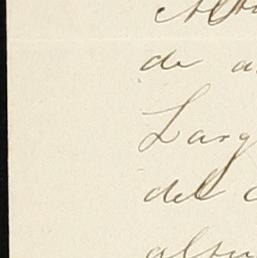 de a
Larg
del
altu